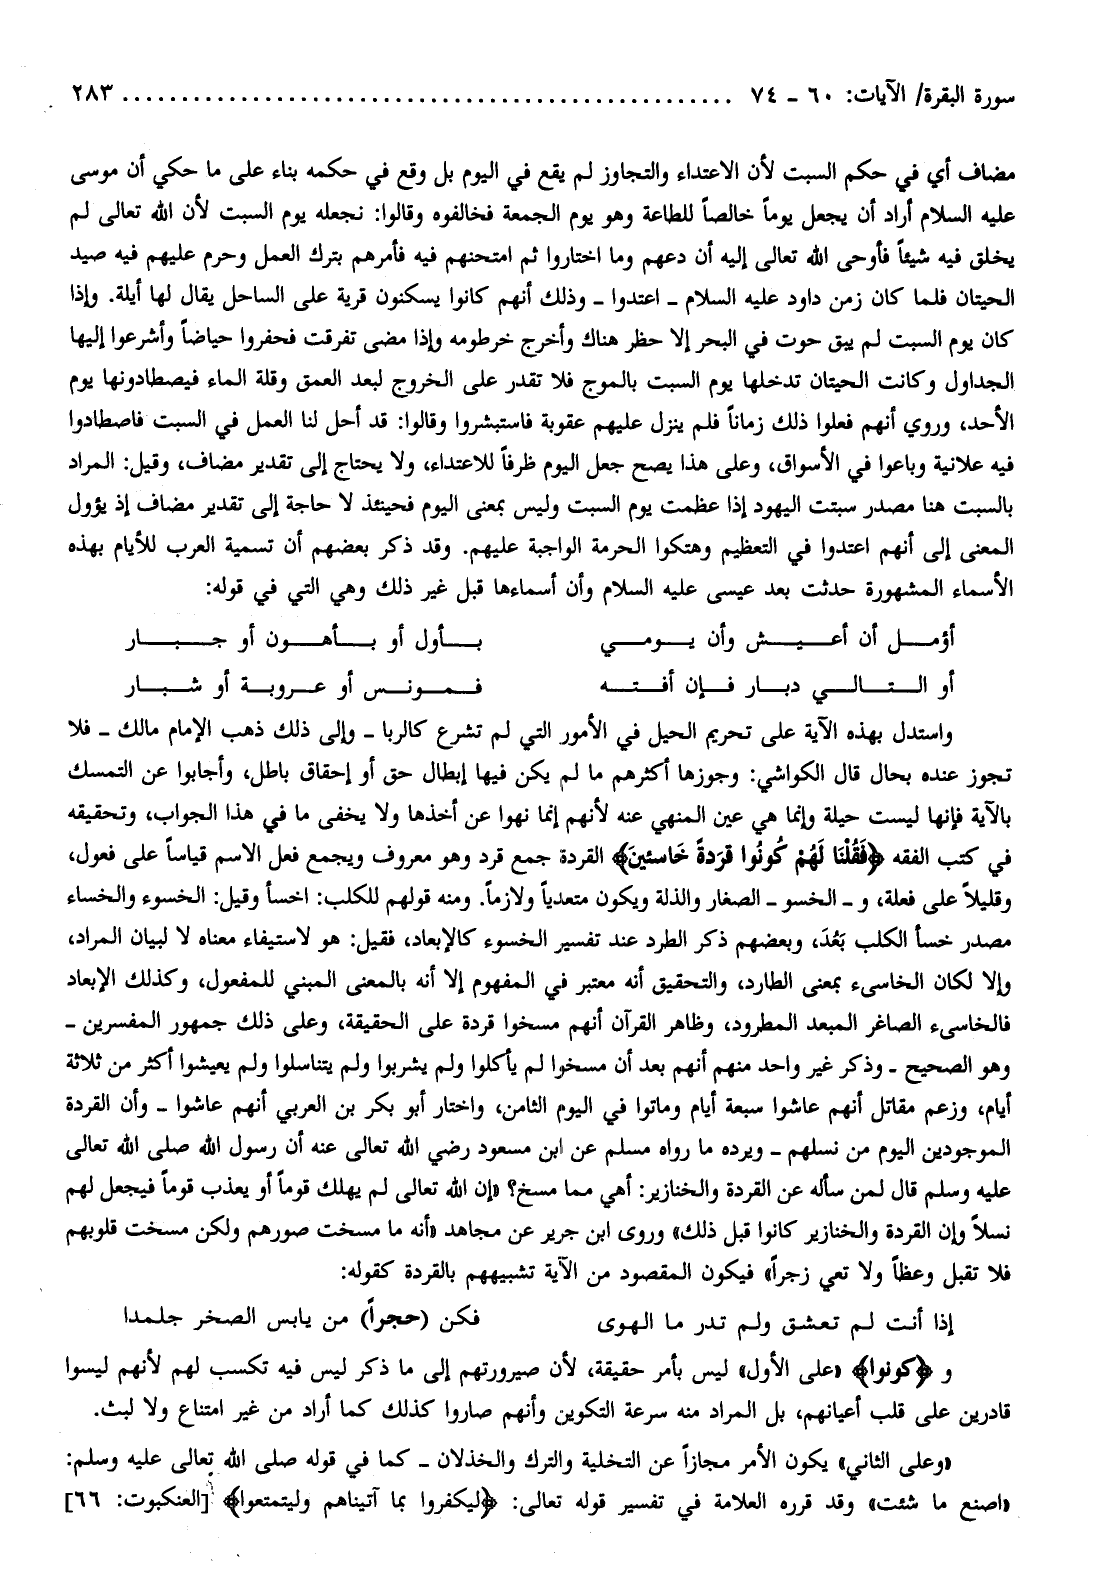 سورة البقرة/ الآيات: ٦٠ ـ ٧٤ ........................................................ ٢٨٣
مضاف أي في حكم السبت لأن الاعتداء والتجاوز لم يقع في اليوم بل وقع في حكمه بناء على ما حكي أن موسى
عليه السلام أراد أن يجعل يوماً خالصاً للطاعة وهو يوم الجمعة فخالفوه وقالوا: نجعله يوم السبت لأن الله تعالى لم
يخلق فيه شيئاً فأوحى الله تعالى إليه أن دعهم وما اختاروا ثم امتحنهم فيه فأمرهم بترك العمل وحرم عليهم فيه صيد
الحيتان فلما كان زمن داود عليه السلام ـ اعتدوا ـ وذلك أنهم كانوا يسكنون قرية على الساحل يقال لها أيلة. وإذا
كان يوم السبت لم يبق حوت في البحر إلا حظر هناك وأخرج خرطومه وإذا مضى تفرقت فحفروا حياضاً وأشرعوا إليها
الجداول وكانت الحيتان تدخلها يوم السبت بالموج فلا تقدر على الخروج لبعد العمق وقلة الماء فيصطادونها يوم
الأحد، وروي أنهم فعلوا ذلك زماناً فلم ينزل عليهم عقوبة فاستبشروا وقالوا: قد أحل لنا العمل في السبت فاصطادوا
فيه علانية وباعوا في الأسواق، وعلى هذا يصح جعل اليوم ظرفاً للاعتداء، ولا يحتاج إلى تقدير مضاف، وقيل: المراد
بالسبت هنا مصدر سبتت اليهود إذا عظمت يوم السبت وليس بمعنى اليوم فحينئذ لا حاجة إلى تقدير مضاف إذ يؤول
المعنى إلى أنهم اعتدوا في التعظيم وهتكوا الحرمة الواجبة عليهم. وقد ذكر بعضهم أن تسمية العرب للأيام بهذه
الأسماء المشهورة حدثت بعد عيسى عليه السلام وأن أسماءها قبل غير ذلك وهي التي في قوله:
أؤمل أن أعيش وأن يومي بأول أو بأهون أو جبار
أو التالي دبار فإن أفته فمونس أو عروبة أو شبار
واستدل بهذه الآية على تحريم الحيل في الأمور التي لم تشرع كالربا ـ وإلى ذلك ذهب الإمام مالك ـ فلا
تجوز عنده بحال قال الكواشي: وجوزها أكثرهم ما لم يكن فيها إبطال حق أو إحقاق باطل، وأجابوا عن التمسك
بالآية فإنها ليست حيلة وإنما هي عين المنهي عنه لأنهم إنما نهوا عن أخذها ولا يخفى ما في هذا الجواب، وتحقيقه
في كتب الفقه ﴿فَقُلْنَا لَهُمْ كُونُوا قرَدةً خَاسئينَ﴾ القردة جمع قرد وهو معروف ويجمع فعل الاسم قياساً على فعول،
وقليلاً على فعلة، و ـ الخسو ـ الصغار والذلة ويكون متعدياً ولازماً. ومنه قولهم للكلب: اخسأ وقيل: الخسوء والخساء
مصدر خسأ الكلب بَعُدَ، وبعضهم ذكر الطرد عند تفسير الخسوء كالإبعاد، فقيل: هو لاستيفاء معناه لا لبيان المراد،
وإلا لكان الخاسىء بمعنى الطارد، والتحقيق أنه معتبر في المفهوم إلا أنه بالمعنى المبني للمفعول، وكذلك الإبعاد
فالخاسىء الصاغر المبعد المطرود، وظاهر القرآن أنهم مسخوا قردة على الحقيقة، وعلى ذلك جمهور المفسرين ـ
وهو الصحيح ـ وذكر غير واحد منهم أنهم بعد أن مسخوا لم يأكلوا ولم يشربوا ولم يتناسلوا ولم يعيشوا أكثر من ثلاثة
أيام، وزعم مقاتل أنهم عاشوا سبعة أيام وماتوا في اليوم الثامن، واختار أبو بكر بن العربي أنهم عاشوا ـ وأن القردة
الموجودين اليوم من نسلهم ـ ويرده ما رواه مسلم عن ابن مسعود رضي الله تعالى عنه أن رسول الله صلى الله تعالى
عليه وسلم قال لمن سأله عن القردة والخنازير: أهي مما مسخ؟ «إن الله تعالى لم يهلك قوماً أو يعذب قوماً فيجعل لهم
نسلاً وإن القردة والخنازير كانوا قبل ذلك» وروى ابن جرير عن مجاهد «أنه ما مسخت صورهم ولكن مسخت قلوبهم
فلا تقبل وعظاً ولا تعي زجراً» فيكون المقصود من الآية تشبيههم بالقردة كقوله:
إذا أنت لم تعشق ولم تدر ما الهوى فكن (حجراً) من يابس الصخر جلمدا
و ﴿كونوا﴾ «على الأول» ليس بأمر حقيقة، لأن صيرورتهم إلى ما ذكر ليس فيه تكسب لهم لأنهم ليسوا
قادرين على قلب أعيانهم، بل المراد منه سرعة التكوين وأنهم صاروا كذلك كما أراد من غير امتناع ولا لبث.
«وعلى الثاني» يكون الأمر مجازاً عن التخلية والترك والخذلان ـ كما في قوله صلى الله تعالى عليه وسلم:
«اصنع ما شئت» وقد قرره العلامة في تفسير قوله تعالى: ﴿ليكفروا بما آتيناهم وليتمتعوا﴾ [العنكبوت: ٦٦]